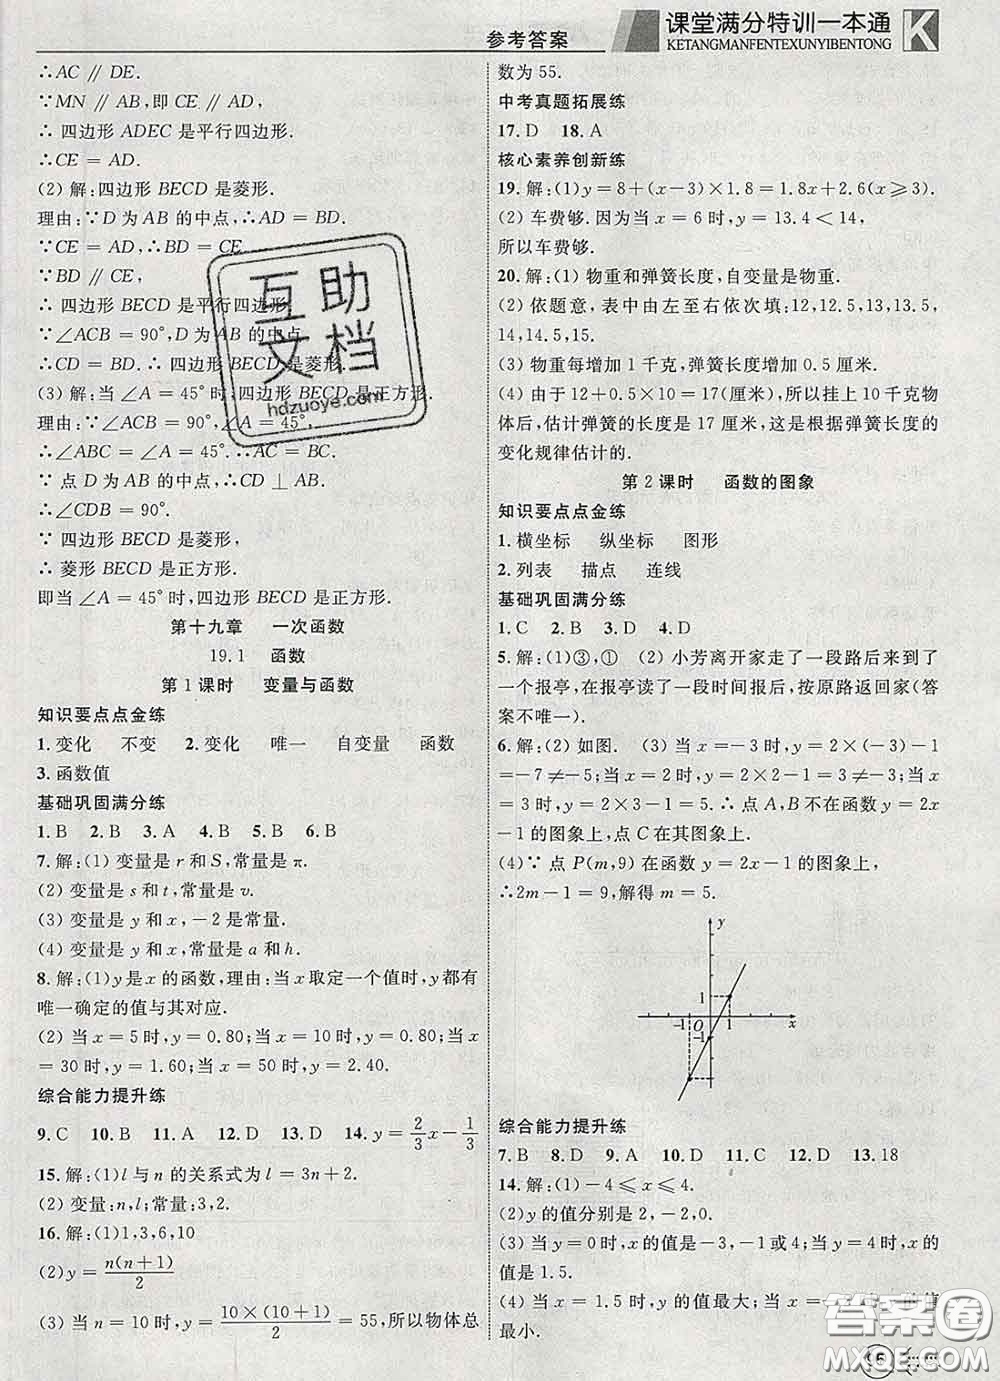 参考答案
课堂满分特训一本通
KETANGMANFENTEXUNYIBENTONG
K
∴AC∥DE.
∵MN∥AB,即CE∥AD,
∴四边形ADEC是平行四边形.
∴CE=AD.
(2)解:四边形BECD是菱形.
理由:∵D为AB的中点,∴AD=BD.
∵CE=AD,∴BD=CE.
∵BD∥CE,
∴四边形BECD是平行四边形.
∵∠ACB=90°,D为AB的中点
∴CD=BD.∴四边形BECD是菱形.
(3)解:当∠A=45°时,四边形BECD是正方形.
理由:∵∠ACB=90°,∠A=45°,
∴∠ABC=∠A=45°.∴AC=BC.
∵点D为AB的中点,∴CD⊥AB.
∴∠CDB=90°.
∵四边形BECD是菱形,
∴菱形BECD是正方形.
即当∠A=45°时,四边形BECD是正方形.
第十九章 一次函数
19.1 函数
第1课时 变量与函数
知识要点点金练
1.变化 不变 2.变化 唯一 自变量 函数
3.函数值
基础巩固满分练
1.B 2.B 3.A 4.B 5.B 6.B
7.解:(1)变量是r和S,常量是π.
(2)变量是s和t,常量是v.
(3)变量是y和x,-2是常量.
(4)变量是y和x,常量是a和h.
8.解:(1)y是x的函数,理由:当x取定一个值时,y都有
唯一确定的值与其对应.
(2)当x=5时,y=0.80;当x=10时,y=0.80;当x=
30时,y=1.60;当x=50时,y=2.40.
综合能力提升练
9.C 10.B 11.A 12.D 13.D 14.y=2/3x-1/3
15.解:(1)l与n的关系式为l=3n+2.
(2)变量:n,l;常量:3,2.
16.解:(1)1,3,6,10
(2)y=n(n+1)/2
(3)当n=10时,y=10×(10+1)/2=55,所以物体总
数为55.
中考真题拓展练
17.D 18.A
核心素养创新练
19.解:(1)y=8+(x-3)×1.8=1.8x+2.6(x≥3).
(2)车费够.因为当x=6时,y=13.4<14,
所以车费够.
20.解:(1)物重和弹簧长度,自变量是物重.
(2)依题意,表中由左至右依次填:12,12.5,13,13.5,
14,14.5,15.
(3)物重每增加1千克,弹簧长度增加0.5厘米.
(4)由于12+0.5×10=17(厘米),所以挂上10千克物
体后,估计弹簧的长度是17厘米,这是根据弹簧长度的
变化规律估计的.
第2课时 函数的图象
知识要点点金练
1.横坐标 纵坐标 图形
2.列表 描点 连线
基础巩固满分练
1.C 2.B 3.D 4.D
5.解:(1)③,① (2)小芳离开家走了一段路后来到了
一个报亭,在报亭读了一段时间报后,按原路返回家(答
案不唯一).
6.解:(2)如图. (3)当x=-3时,y=2×(-3)-1
=-7≠-5;当x=2时,y=2×2-1=3≠-3;当x=
3时,y=2×3-1=5.∴点A,B不在函数y=2x-
1的图象上,点C在其图象上.
(4)∵点P(m,9)在函数y=2x-1的图象上,
∴2m-1=9,解得m=5.
y
1
-1 O 1 x
-1
综合能力提升练
7.B 8.D 9.A 10.D 11.C 12.D 13.18
14.解:(1)-4≤x≤4.
(2)y的值分别是2,-2,0.
(3)当y=0时,x的值是-3,-1或4;当y=3时,x的
值是1.5.
(4)当x=1.5时,y的值最大;当x=-2时,y的值
最小.
互助
文档
hdzuoye.com
答案圈
MXQE.COM